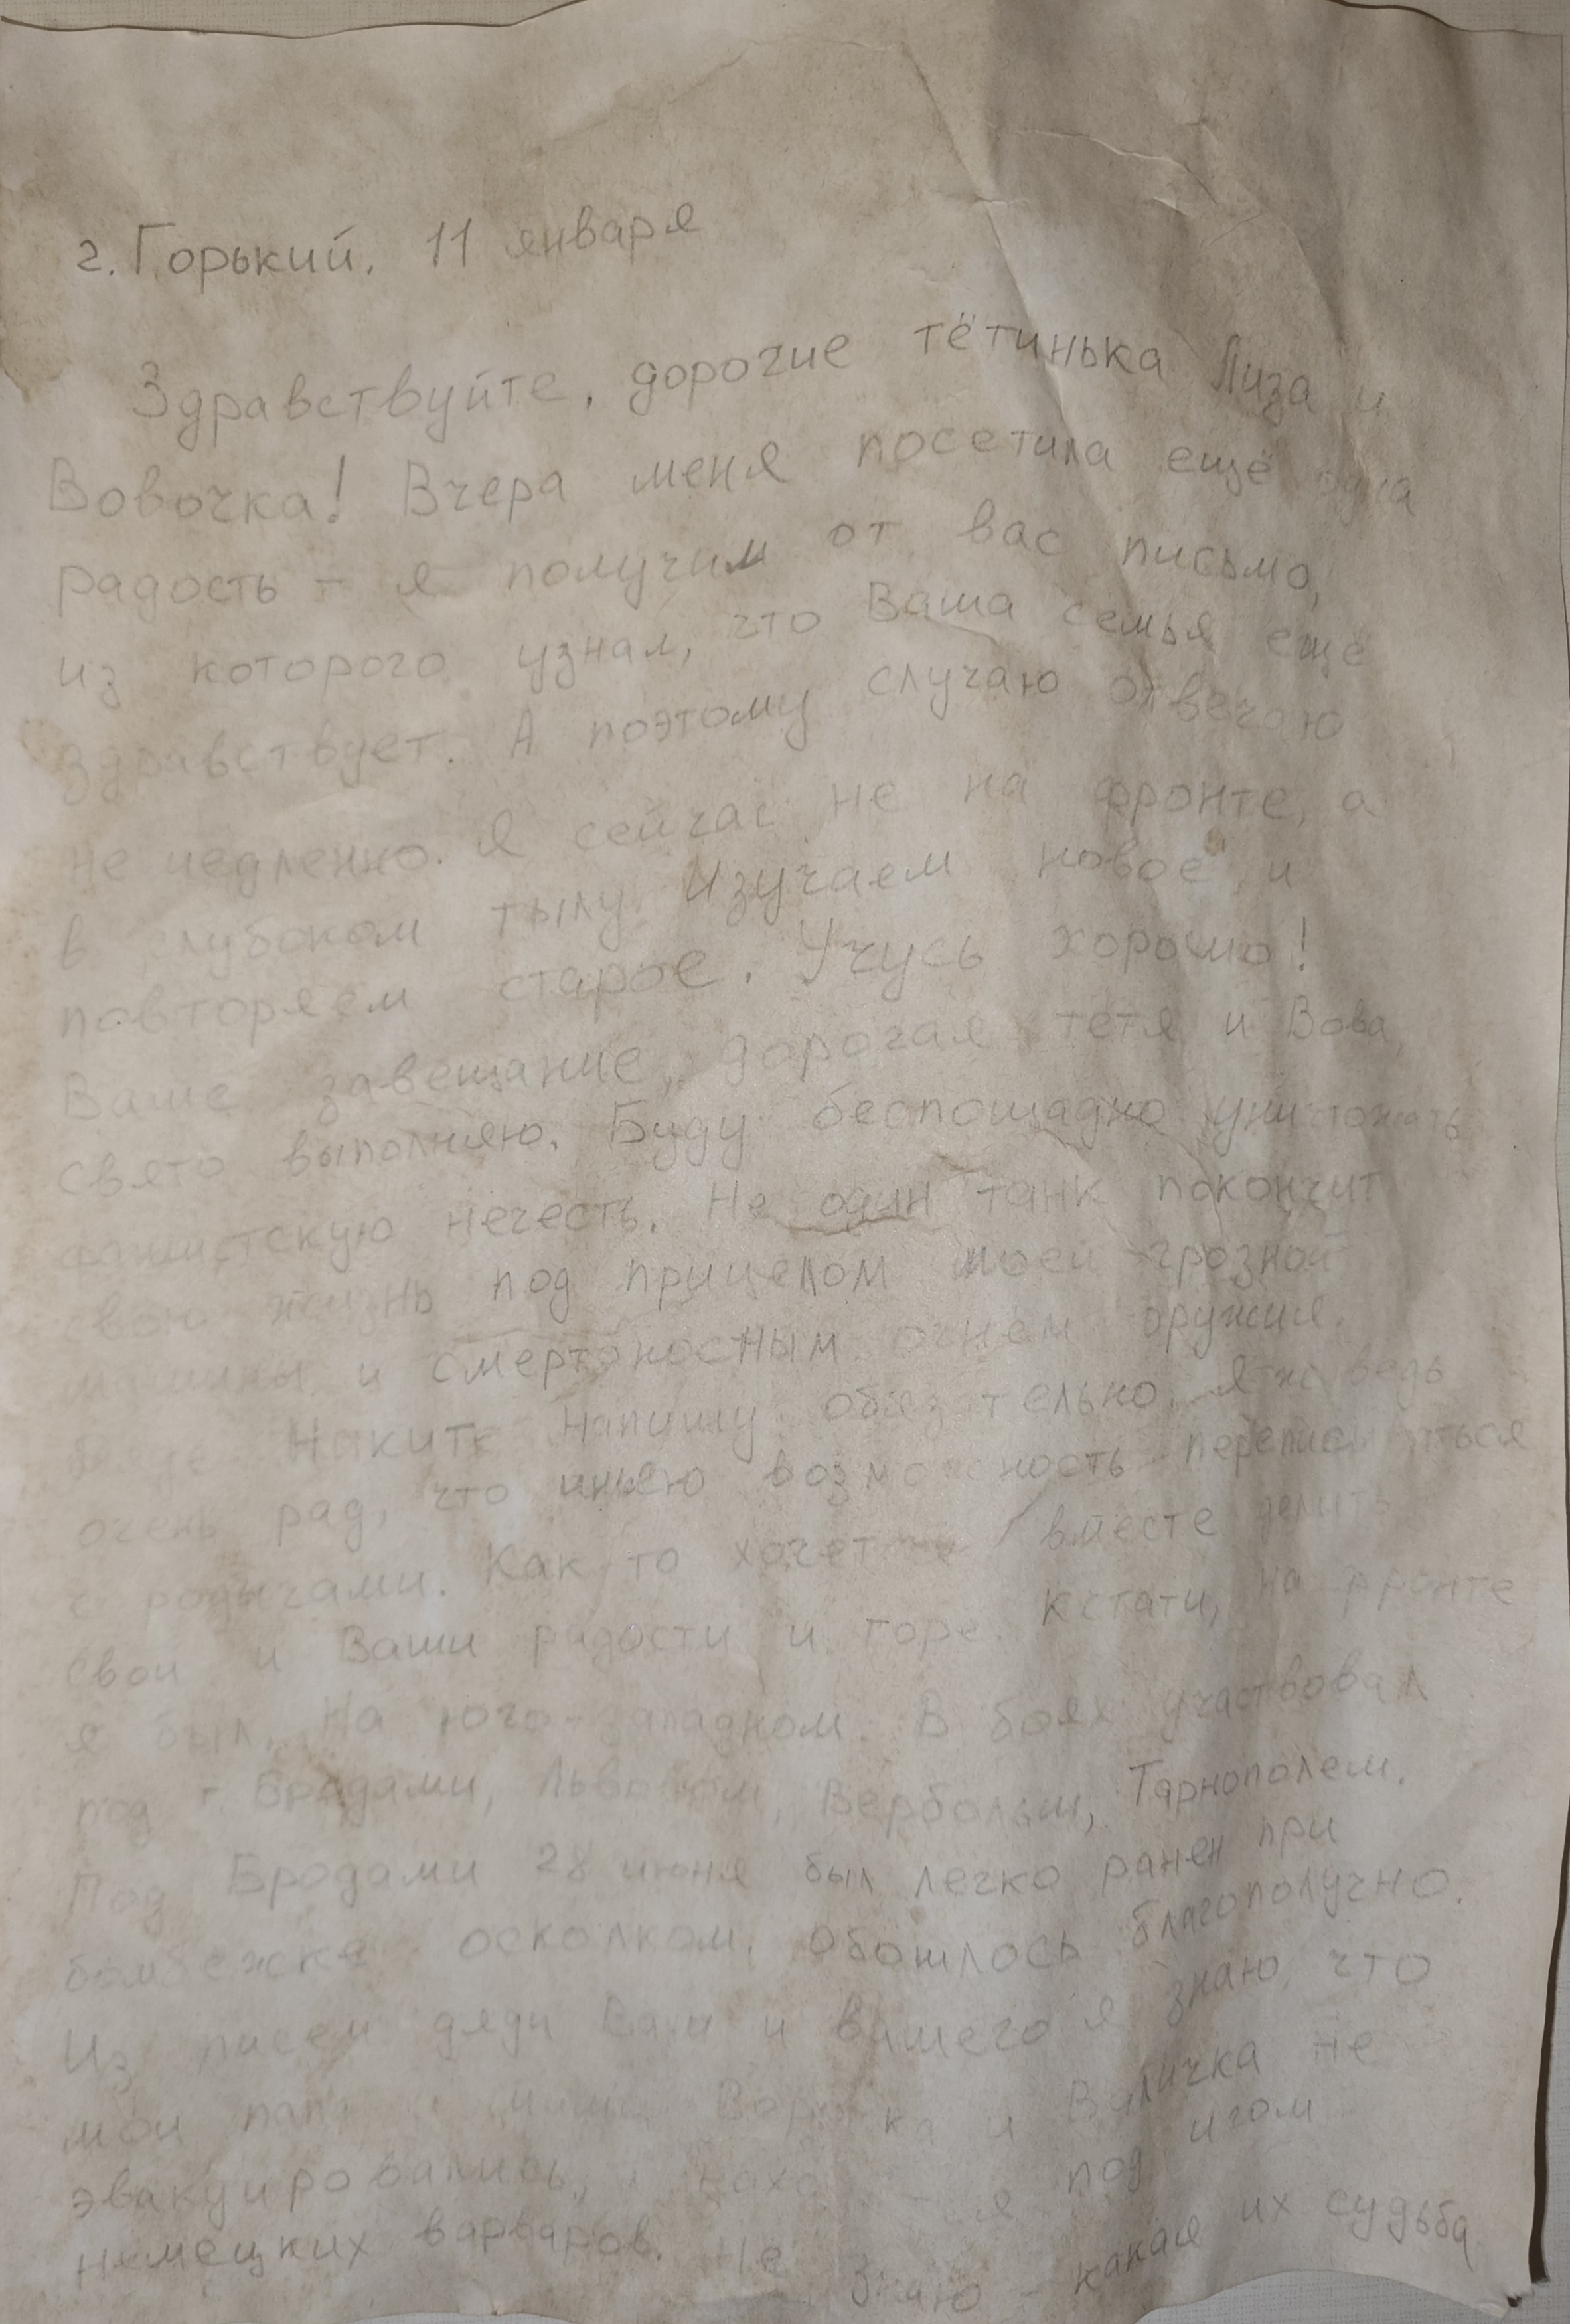 г. Горький. 11 января
Здравствуйте, дорогие тётинька Лиза и
Вовочка! Вчера меня посетила ещё одна
радость - я получил от вас письмо,
из которого узнал, что Ваша семья ещё
здравствует. А поэтому случаю отвечаю
не медленно. Я сейчас не на фронте, а
в глубоком тылу. Изучаем новое и
повторяем старое. Учусь хорошо!
Ваше завещание, дорогая тётя и Вова,
свято выполняю. Буду беспощадно уничтожать
фашистскую нечесть. Не один танк покончит
свою жизнь под прицелом моей грозной
машины и смертоносным огнём оружия.
Никите напишу обязательно. Я же ведь
очень рад, что имею возможность переписываться
с родычами. Как то хочется вместе делить
свои и Ваши радости и горе. Кстати, на фронте
я был. На юго-западном. В боях участвовал
под г. Бродами, Львовом, Вербольш, Тарнополем.
Под Бродами 28 июня был легко ранен при
бомбежке осколком. Обошлось благополучно.
Из писем дяди и вашего я знаю, что
мои папа и Валичка не
эвакуировались, под игом
немецких варваров. Не знаю - какая их судьба